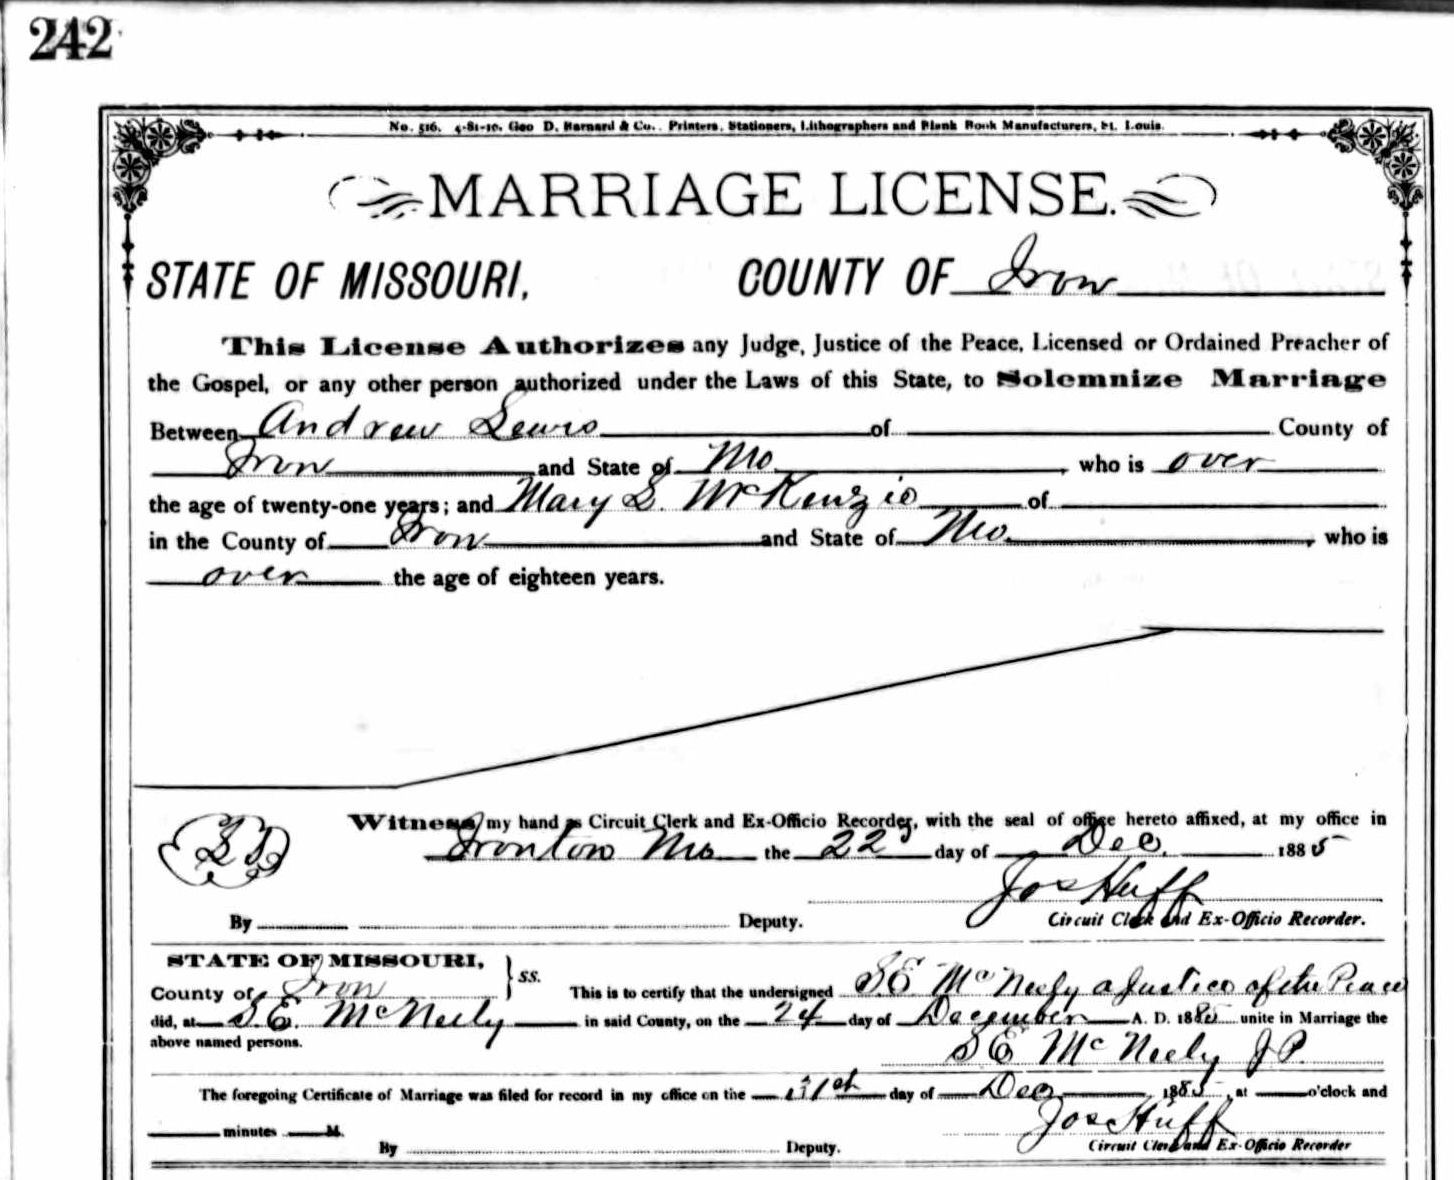 242
No. 516. 4-81-10. Geo D. Barnard & Co., Printers, Stationers, Lithographers and Blank Book Manufacturers, St. Louis.
MARRIAGE LICENSE.
STATE OF MISSOURI, COUNTY OF Iron
This License Authorizes any Judge, Justice of the Peace, Licensed or Ordained Preacher of
the Gospel, or any other person authorized under the Laws of this State, to Solemnize Marriage
Between Andrew Lewis of County of
Iron and State of Mo , who is over
the age of twenty-one years; and Mary L. McKenzie of
in the County of Iron and State of Mo. , who is
over the age of eighteen years.
Witness my hand as Circuit Clerk and Ex-Officio Recorder, with the seal of office hereto affixed, at my office in
Ironton Mo the 22 day of Dec. 1885
Jos Huff
By Deputy. Circuit Clerk and Ex-Officio Recorder.
STATE OF MISSOURI, } ss.
County of Iron This is to certify that the undersigned S.E. McNeely a Justice of the Peace
did, at S.E. McNeely in said County, on the 24 day of December A. D. 1885 unite in Marriage the
above named persons. S E McNeely J P.
The foregoing Certificate of Marriage was filed for record in my office on the 31st day of Dec 1885, at o'clock and
minutes M. Jos Huff
By Deputy. Circuit Clerk and Ex-Officio Recorder